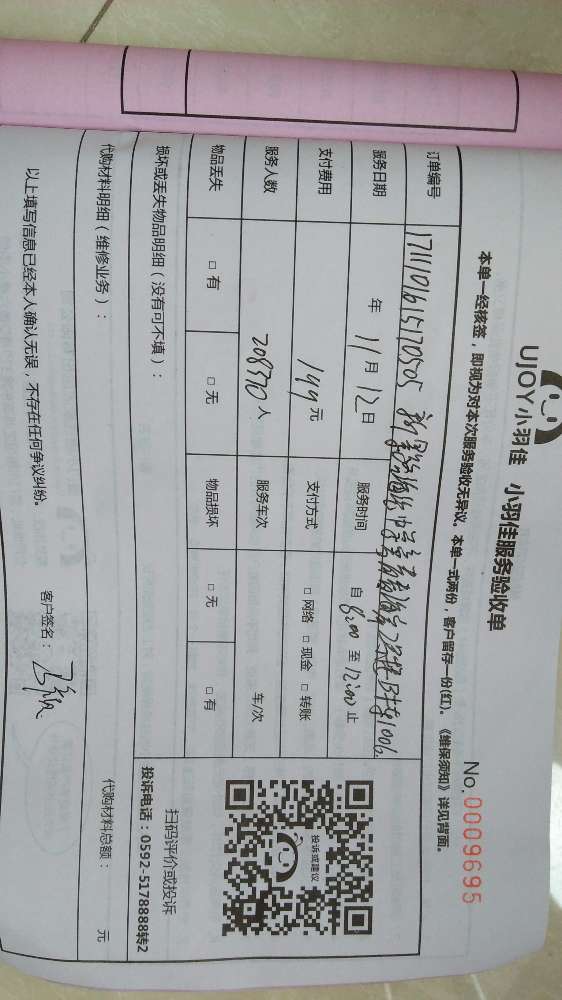 UJOY小羽佳 小羽佳服务验收单
No. 0009695
本单一经核签，即视为对本次服务验收无异议。本单一式两份，客户留存一份(红)。《维保须知》详见背面。
订单编号 1711101615170505
服务日期 年 11月12日 服务时间 自 8:00 至 12:00 止
支付费用 199元 支付方式 □网络 □现金 □转账
服务人数 208370人 服务车次 车/次
物品丢失 □有 □无 物品损坏 □无 □有
损坏或丢失物品明细（没有可不填）：
投诉或建议
扫码评价或投诉
投诉电话：0592-5178888转2
代购材料明细（维修业务）： 代购材料总额： 元
以上填写信息已经本人确认无误，不存在任何争议纠纷。 客户签名：